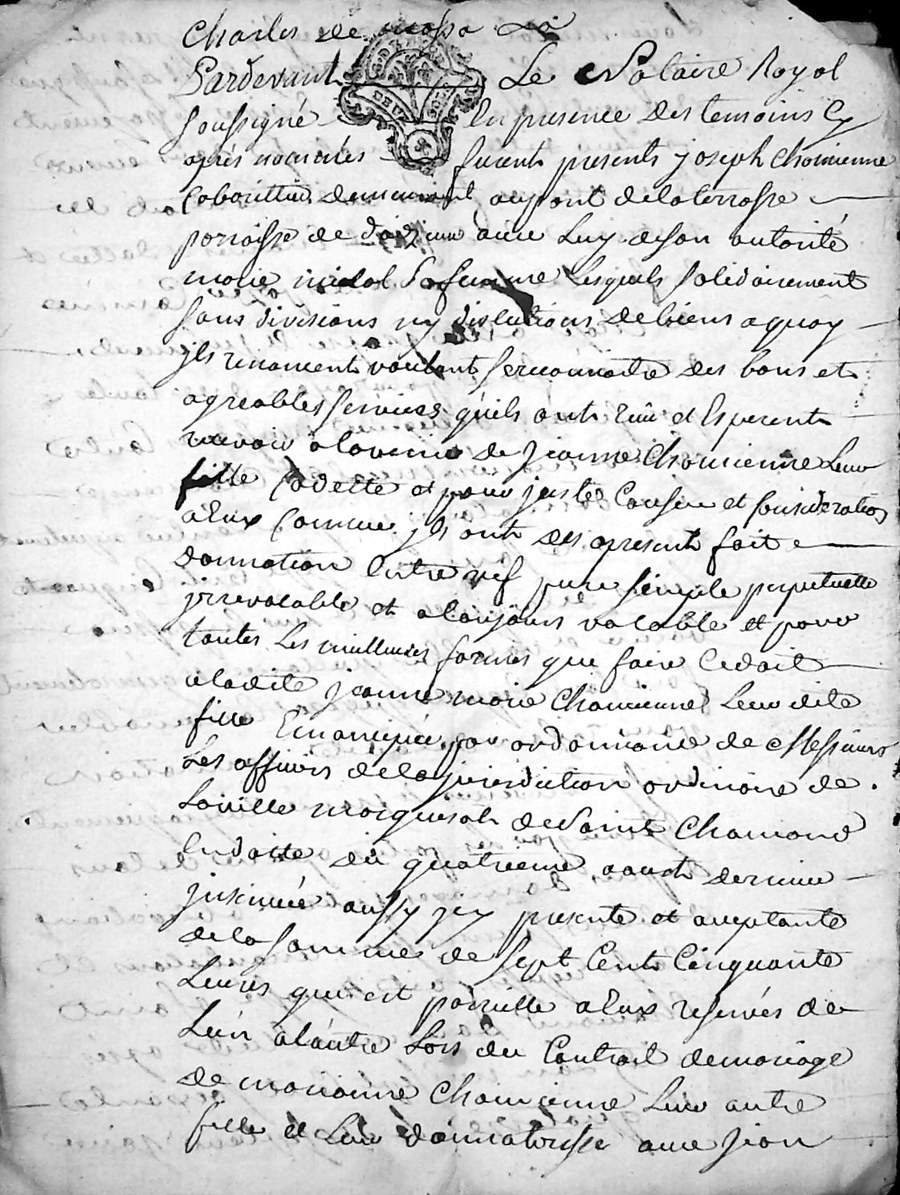 Charles de
Pardevant Le Notaire Royal
soussigné En presence des temoins Cy
apres nommes furent presents joseph Chomienne
Cabourettier demeurant au pont de la terrasse
paroisse de avec Luy de son autorité
marie sa femme Lesquels solidairement
sans divisions ny de biens a quoy
jls renoncent voulant se reconnoitre des bons et
agreables services quils ont et Esperent
recevoir alavenir de jeanne Chomienne Leur
fille Cadette et pour justes Causes et Considerations
a Eux Connue jls ont des apresent fait
donnation Entre vif pure simple perpetuelle
jrrevocable et atousjours valable et pour
toutes Les meilleures formes que faire Ce doit
aladite jeanne marie Chomienne Leur dite
fille Emancipée par ordonnance de Messieurs
Les officiers de la jurisdiction ordinaire de
Laville marquisat de Saint Chamond
En datte du quatrieme aoust dernier
jnsinuée aussy jcy presente et aceptante
de la somme de sept Cent Cinquante
Livres qui est pareille a Eux reservés de
Lun alautre Lors du Contrat de mariage
de marianne Chomienne Leur autre
fille et Leur donnatrisse avec jean